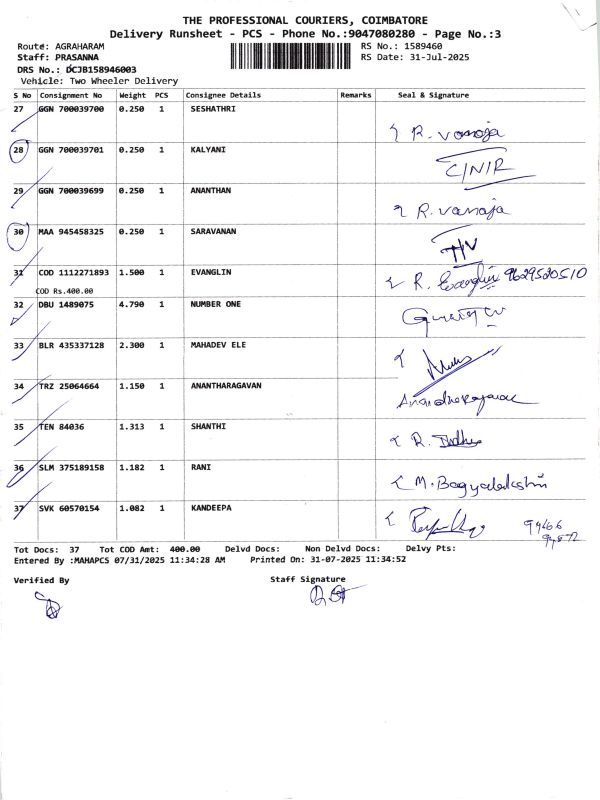 THE PROFESSIONAL COURIERS, COIMBATORE
Delivery Runsheet - PCS - Phone No.:9047080280 - Page No.:3
Route: AGRAHARAM RS No.: 1589460
Staff: PRASANNA RS Date: 31-Jul-2025
DRS No.: DCJB158946003
Vehicle: Two Wheeler Delivery
S No Consignment No Weight PCS Consignee Details Remarks Seal & Signature
27 GGN 700039700 0.250 1 SESHATHRI
R. vanaja
28 GGN 700039701 0.250 1 KALYANI
C/NIR
29 GGN 700039699 0.250 1 ANANTHAN
R. vanaja
30 MAA 945458325 0.250 1 SARAVANAN
31 COD 1112271893 1.500 1 EVANGLIN
R. Evanglin 9629520510
COD Rs.400.00
32 DBU 1489075 4.790 1 NUMBER ONE
33 BLR 435337128 2.300 1 MAHADEV ELE
34 TRZ 25064664 1.150 1 ANANTHARAGAVAN
35 TEN 84036 1.313 1 SHANTHI
36 SLM 375189158 1.182 1 RANI
M. Bagyalakshmi
37 SVK 60570154 1.082 1 KANDEEPA
Tot Docs: 37 Tot COD Amt: 400.00 Delvd Docs: Non Delvd Docs: Delvy Pts:
Entered By :MAHAPCS 07/31/2025 11:34:28 AM Printed On: 31-07-2025 11:34:52
Verified By Staff Signature